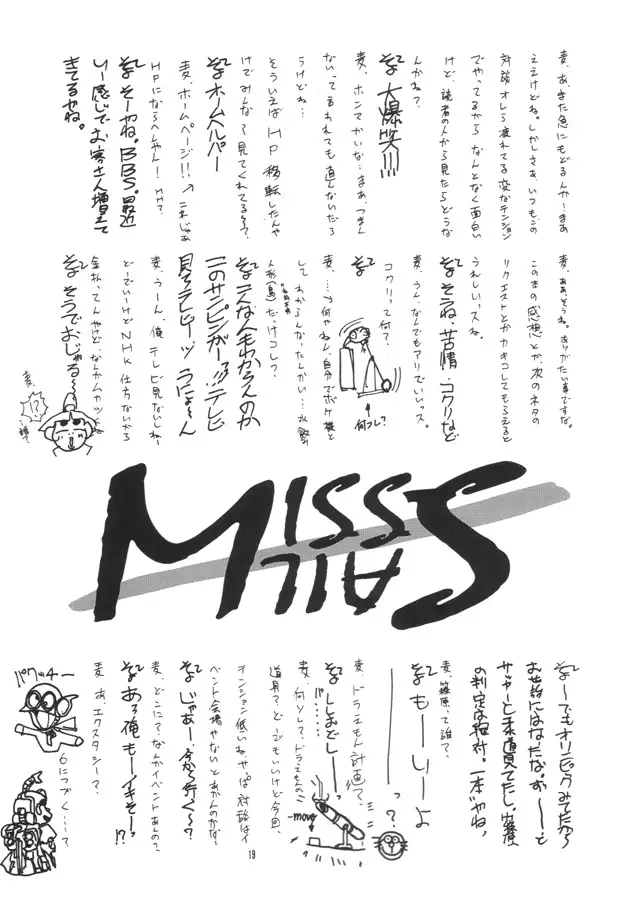 麦、あ、また急にもどるんか…まあ
ええけどね。しかしさあ、いつもこの
対談オレら疲れてる変なテンション
でやってるから なんとなく面白い
けど、読者の人から見たらどうな
んかね?
そ 大爆笑!!!
麦、ホンマかいな…まあ、つまん
ないってゆわれても直んないだろ
うけどね…
そういえば HP 移転したんや
けどみんな見てくれてる〜?
そ ホームヘルパー
麦、ホームページ!! ↗ これじゃあ
HPにならへんやん! HH?
そ そーやね。BBS。最近
いー感じでお客さん増えて
きてるやね。
麦、ああ、そうね。ありがたい事ですな。
この本の感想とか、次のネタの
リクエストとかカキコしてもらえると
うれしいっスね。
そ そうね、苦情・コクリなど
麦、うん、なんでもアリでいいっス。
コクリって何?
そ
↑
何コレ?
麦、…何やねん、自分でボケ横と
してわからんなったんかい…水飲み
人形(鳥)だけコレ?
そ こんな人もわからんのか
このサンピンがーッ!!! テレビ
見てテレビーッ うにょ〜ん
麦、うーん、俺テレビ見ないしね〜
どーでいーけどNHK 仕方ないから
金払ってんやけど、なんかムカッとよね
そ そうでおじゃる〜
麦、
!?
MISS
SAIL
そ 〜でもオリンピックみてたから
お世話にはなたな。お〜〜と
サッカーと柔道見てたし。篠原
の判定は絶対。一本やね。
麦、篠原って誰?
そ もーしーよ
――――っ?
麦、ドラえもん計画?
そ しまおどし
‥‥‥
麦、何ソレ?、ドラえもんの
道具?、どーでもいいけど今回、
-move
テンション低いねやっぱ対談はイ
ベント会場やないとあかんのかな〜
そ じゃあー、今から行く〜?
麦、どこに?、なんかイベントあんの?
そ ある 俺もーイキそーっ!!?
麦、あ、エクスタシー?、
6につづく…?
パクッチー
19